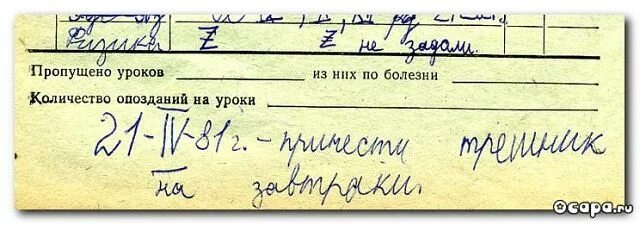 Физика Z Z не задали.
Пропущено уроков из них по болезни
Количество опозданий на уроки
21-IV-81 г. - принести трешник
на завтраки.
capa.ru